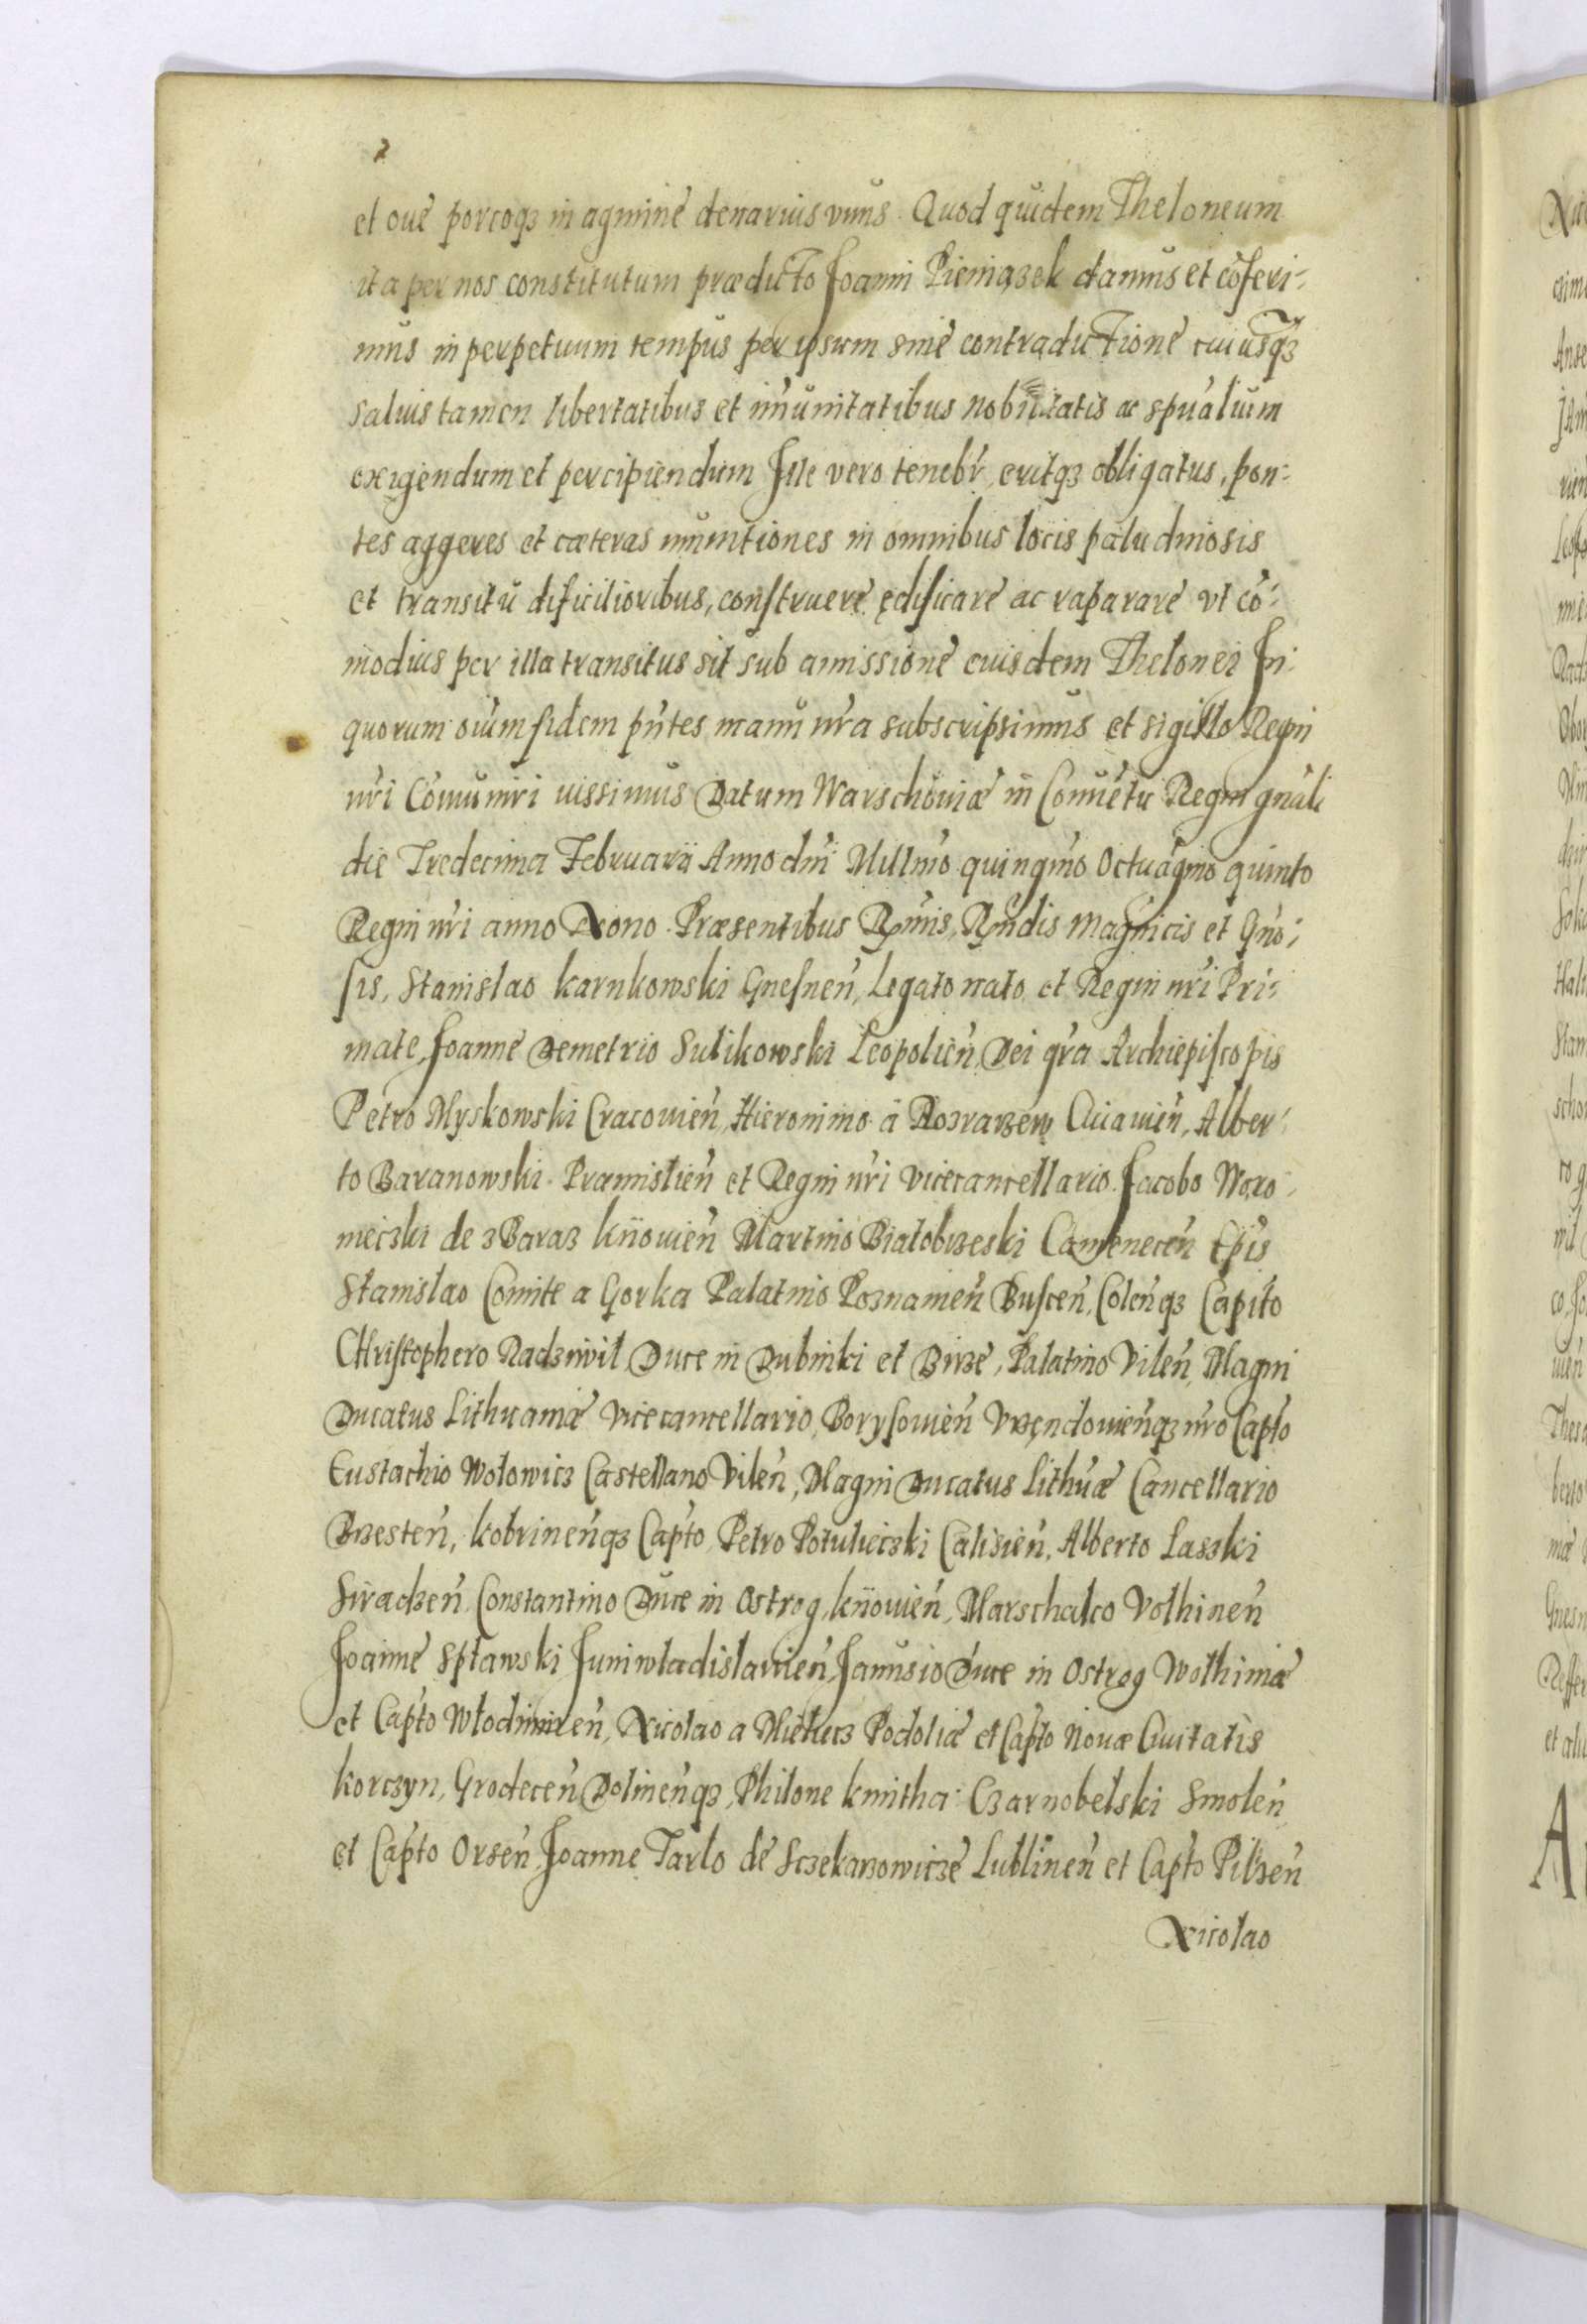 2
et oue porcoqȝ in agmine denarius vnus. Quod quidem Theloneum
ita per nos constitutum prædicto Joanni Pieniązek damus et cōferi-
mus in perpetuum tempus per ipsum sine contradictione cuiusqȝ
saluis tamen libertatibus et im̄unitatibus nobilitatis ac spūalium
exigendum et percipiendum Ille vero tenebr̄, eritqȝ obligatus, pon-
tes aggeres et cæteras munitiones in omnibus locis paludinosis
et transitu dificilioribus, construere ędificare ac raparare vt cō-
modius per illa transitus sit sub amissione euisdem Thelonei In
quorum oīum fidem pn̄tes manu nr̄a subscripsimus et sigillo Regni
nr̄i Cōmuniri iussimus Datum Warschouiæ in Conuētu Regni gnāli
die Tredecima Februarii Anno dn̄i Millm̄o quingm̄o Octuagm̄o quinto
Regni nr̄i anno Nono. Præsentibus Rm̄is, Rn̄dis Magnicis et Gn̄o-
sis, Stanislao Karnkowski Gnesnen̄, Legato nato et Regni nr̄i Pri-
mate, Joanne Demetrio Sulikowski Leopolien̄, Dei gr̄a Archiepiscopis
Petro Myskowski Cracouien̄, Hieronimo à Rozrażew Cuiauien̄, Alber-
to Baranowski Præmislien̄ et Regni nr̄i vicecancellario. Jacobo Woro-
nieczki de zBaraz Kiiouien̄ Martino Białobrzeski Camenecen̄ Ep̄is
Stanislao Comite a Gorka Palatino Poznanien̄ Buscen̄, Colen̄qȝ Capito
Christophero Radziwil Duce in Dubinki et Birże, Palatino Vilen̄, Magni
Ducatus Lithuaniæ Vicecancellario, Borysouien̄ Vrzendouien̄qȝ nr̄o Capt̄o
Eustachio Wolowicz Castellano Vilen̄, Magni Ducatus Lithūæ Cancellario
Brzesten̄, Kobrinen̄qȝ Capt̄o, Petro Potulieczki Calisien̄, Alberto Laszki
Siradzen̄ Constantino Duce in Ostrog, Kiiouien̄, Marschalco Volhinen̄
Joanne Spławski Juniwladislauien̄, Janusio Duce in Ostrog Wolhiniæ
et Capt̄o Włodimiren̄, Nicolao a Mielecz Podoliæ et Capt̄o Nouæ Ciuitatis
Korczyn, Grodecen̄ Dolinen̄qȝ, Philone Kmitha Czarnobelski Smolen̄
et Capt̄o Orsen̄ Joanne Tarlo de Sczekarzowicze Lublinen̄ et Capt̄o Pilzen̄
Nicolao